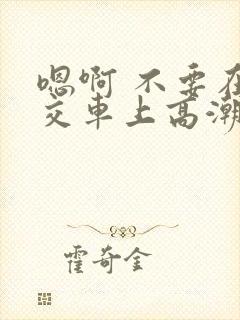 嗯啊 不要在
交车上高潮
霍奇金